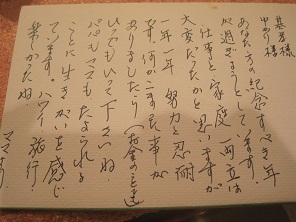 基彦様
ゆかり様
あなた方の記念すべき年
が過ぎようとしています。
仕事と家庭、両立は
大変だったかと思いますが
一年一年、努力と忍耐
です。何かこまった事が
ありましたら(お金のこと迄
いつでもいって下さいね。
パパもママもたよられる
ことに生きがいを感じ
ています。ハワイ旅行
楽しかったね。
ママより